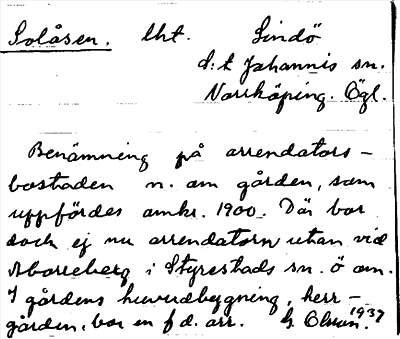 Solåsen. lht. Lindö
S:t Johannis sn.
Norrköping. Ögl.
Benämning på arrendators-
bostaden n. om gården, som
uppfördes omkr. 1900. Där bor
dock ej nu arrendatorn utan vid
Aborreberg i Styrestads sn. ö om.
I gårdens huvudbygning, herr-
gården, bor en f d. arr. G. Olsson. 1937